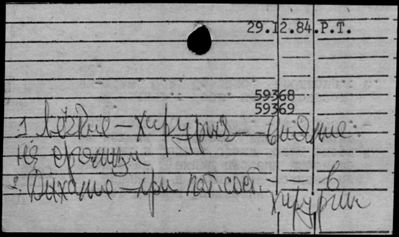 29.12.84.Р.Т.
59368
59369
1. Легкие – хирургия – влияние
на организм
2. Дыхание – при пат. сост. – в
хирургии